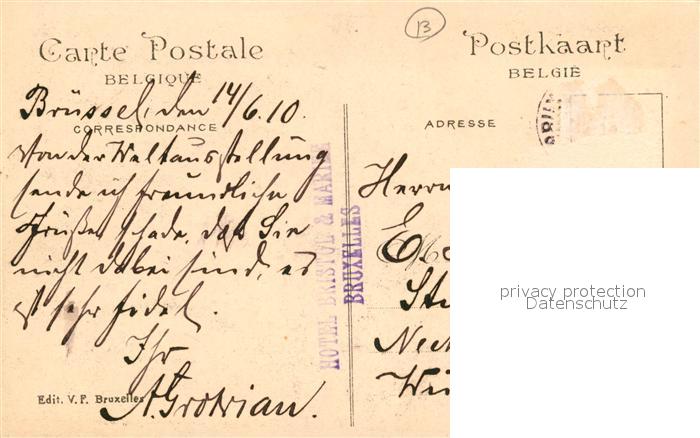 B
Carte Postale
BELGIQUE
Postkaart
BELGIË
Brüssel, den 14/6.10.
CORRESPONDANCE
Von der Weltausstellung
sende ich freundliche
Grüße. Schade, daß Sie
nicht dabei sind, es
ist sehr fidel.
Ihr
A. Grotrian.
Edit. V. P. Bruxelles
HOTEL BRISTOL & MARINE
BRUXELLES
ADRESSE
Herrn
privacy protection
Datenschutz